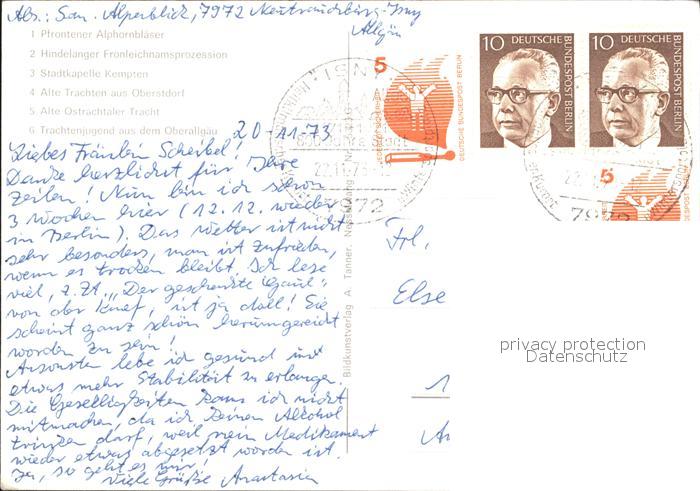 Abs.: San. Alpenblick, 7972 Neutrauchburg-Isny
Allgäu
1 Pfrontener Alphornbläser
2 Hindelanger Fronleichnamsprozession
3 Stadtkapelle Kempten
4 Alte Trachten aus Oberstdorf
5 Alte Ostrachtaler Tracht
6 Trachtenjugend aus dem Oberallgäu
20-11-73
Liebes Fräulein Scheibel!
Danke herzlichst für Ihre
Zeilen! Nun bin ich schon
3 Wochen hier (12.12. wieder
in Berlin). Das Wetter ist nicht
sehr besonders, man ist zufrieden,
wenn es trocken bleibt. Ich lese
viel, z.Zt. "Der geschenkte Gaul"
von der Knef, ist ja doll! Sie
scheint ganz schön herumgereicht
worden zu sein!
Ansonsten lebe ich gesund und
etwas mehr Stabilität zu erlangen.
Die Geselligkeiten kann ich nicht
mitmachen, da ich keinen Alkohol
trinken darf, weil mein Medikament
wieder etwas abgesetzt worden ist.
Ja, so geht es mir!
Viele Grüße Anastasia
Bildkunstverlag A. Tanner,
5
DEUTSCHE BUNDESPOST BERLIN
10 DEUTSCHE BUNDESPOST BERLIN
10 DEUTSCHE BUNDESPOST BERLIN
5
ISNY
22.11.73
7972
7972
Frl.
Else
privacy protection
Datenschutz